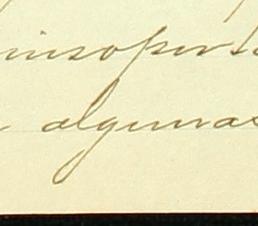 insoport
algunas